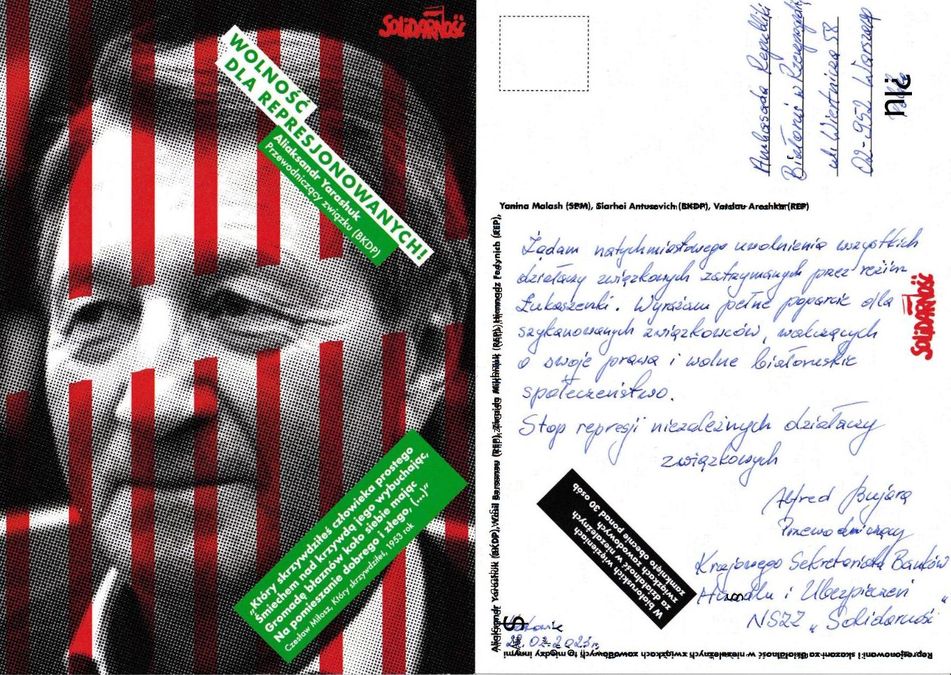 Solidarność
WOLNOŚĆ
DLA REPRESJONOWANYCH!
Aliaksandr Yarashuk
Przewodniczący związku (BKDP)
„Który skrzywdziłeś człowieka prostego
Śmiechem nad krzywdą jego wybuchając,
Gromadę błaznów koło siebie mając
Na pomieszanie dobrego i złego, (...)”
Czesław Miłosz, Który skrzywdziłeś, 1953 rok
Ambasada Republiki
Białoruś w Rzeczpospolitej
ul. Wiertnicza 58
02-952 Warszawa
Yanina Malash (SPM), Siarhei Antusevich (BKDP), Vatslau Areshka (REP)
Żądam natychmiastowego uwolnienia wszystkich
działaczy związkowych zatrzymanych przez reżim
Łukaszenki. Wyrażam pełne poparcie dla
szykanowanych związkowców, walczących
o swoje prawa i wolne białoruskie
społeczeństwo.
Stop represji niezależnych działaczy
związkowych
Solidarność
Alfred Bujara
Przewodniczący
Krajowego Sekretariatu Banków
Handlu i Ubezpieczeń
NSZZ „Solidarność”
W białoruskich więzieniach
za działalność w niezależnych
związkach zawodowych
zamknięto obecnie ponad 30 osób
Aliaksandr Yarashuk (BKDP), Vasil Berasnau (REP), Zinaida Mikhniuk (REP), Hennadz Fedynich (REP),
Represjonowani i skazani za działalność w niezależnych związkach zawodowych to między innymi